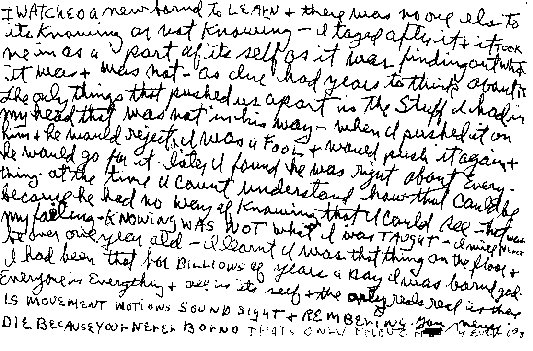 I WATCHED a new bornd to LEARN + there was no one els to
its knowing or not knowing - I taged after it + it took
me in as a part of its self as it was finding out what
it was + was not - as Ive had years to think about it
the only things that pushed us apart is the Stuff I had in
my head that was not in his way - when I pushed it on
him + he would reject it I was a FOOL + would push it again +
he would go for it later I found he was right about every-
thing - at the time I count understand how that could be
because he had no way of knowing that I could see - that was
my failing - KNOWING WAS NOT what I was TAUGHT - I
be over one year old - I learnt I was that thing on the floor +
I had been that for BILLIONS of years a day I was barnd god
Everyone is Everything + all is its self + the only real real is there
IS MOVEMENT MOTIONS SOUND SIGHT + REMBERING you never
DIE BECAUSE YOUR NEVER BORND THATS ONLY